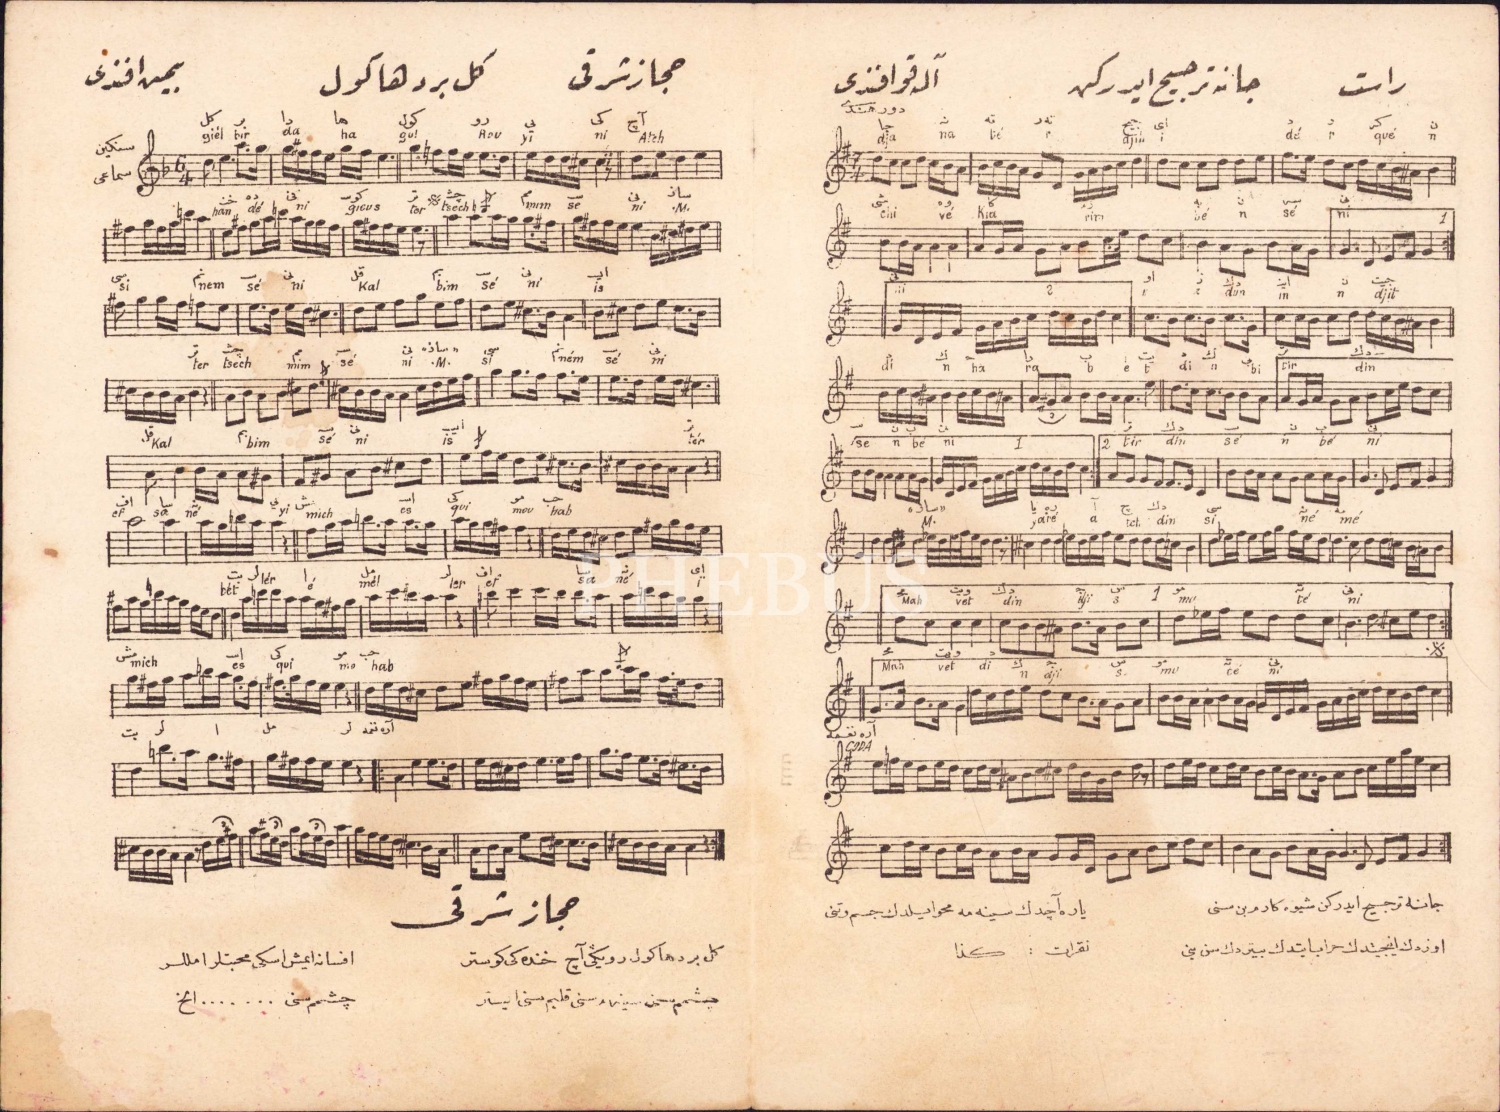 بيمن افندی
گل بر دها گول
حجاز شرقی
سنگین سماعی
كل بر دا ها گول رو یی نی آچ
giel bir da ha gul Rou yi ni Atch
han dé ni gieus ter tsech mim sé ni .M.
si nem sé ni Kal bim sé ni is
ter tsech mim sé ni .M. si ném sé ni
Kal bim sé ni is ter
ef sa né yi mich es qui mou hab
bét lér é mél ler ef sa né i
mich es qui mo hab
بت لر ا مل لر آره نغمه
حجاز شرقی
گل بر دها گول رویكی آچ خنده كی گوستر
افسانه ایمش اسكی محبتلر امللر
چشمم سنی سینه م سنی قلبم سنی ایستر
چشمم سنی ....... الخ
راست
جانه ترجیح ایدركن
آله قو افندی
دور هندی
dja na té r djih i dé r qué n
chi vé Kia rim bé n sé ni 1
ni 2 u z dun in n djit
di n ha ra b e t di n bi tir din
se n bé ni 1 2 tir din sé n bé ni
«ساز» .M. yaré a tch din si né mé
Mah vet din dji s 1 mu té ni
Mah vet di n dji s mu té ni
آره نغمه
CODA
جانه ترجیح ایدركن شیوه كارم بن سنی
یاره آچدك سینه مه محو ایلدك جسم و تنی
اوزدك اینجیتدك خراب ایتدك بیتردك سن بنی
نقرات : كذا
PHEBUS